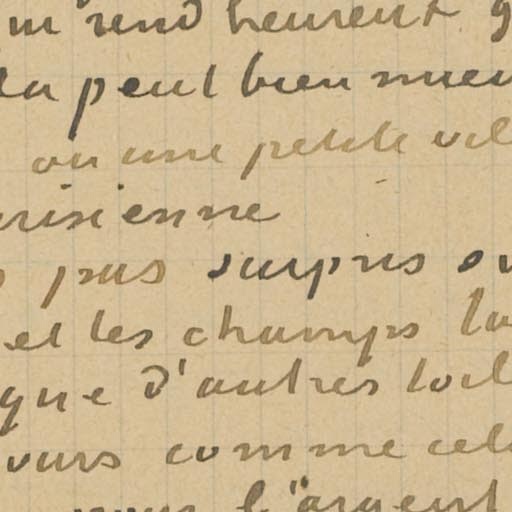 rend heureux
peut bien mieux
ou une petite vil
risienne
pas surpris
et les champs la
que d'autres toil
vers comme cela
pour l'argent